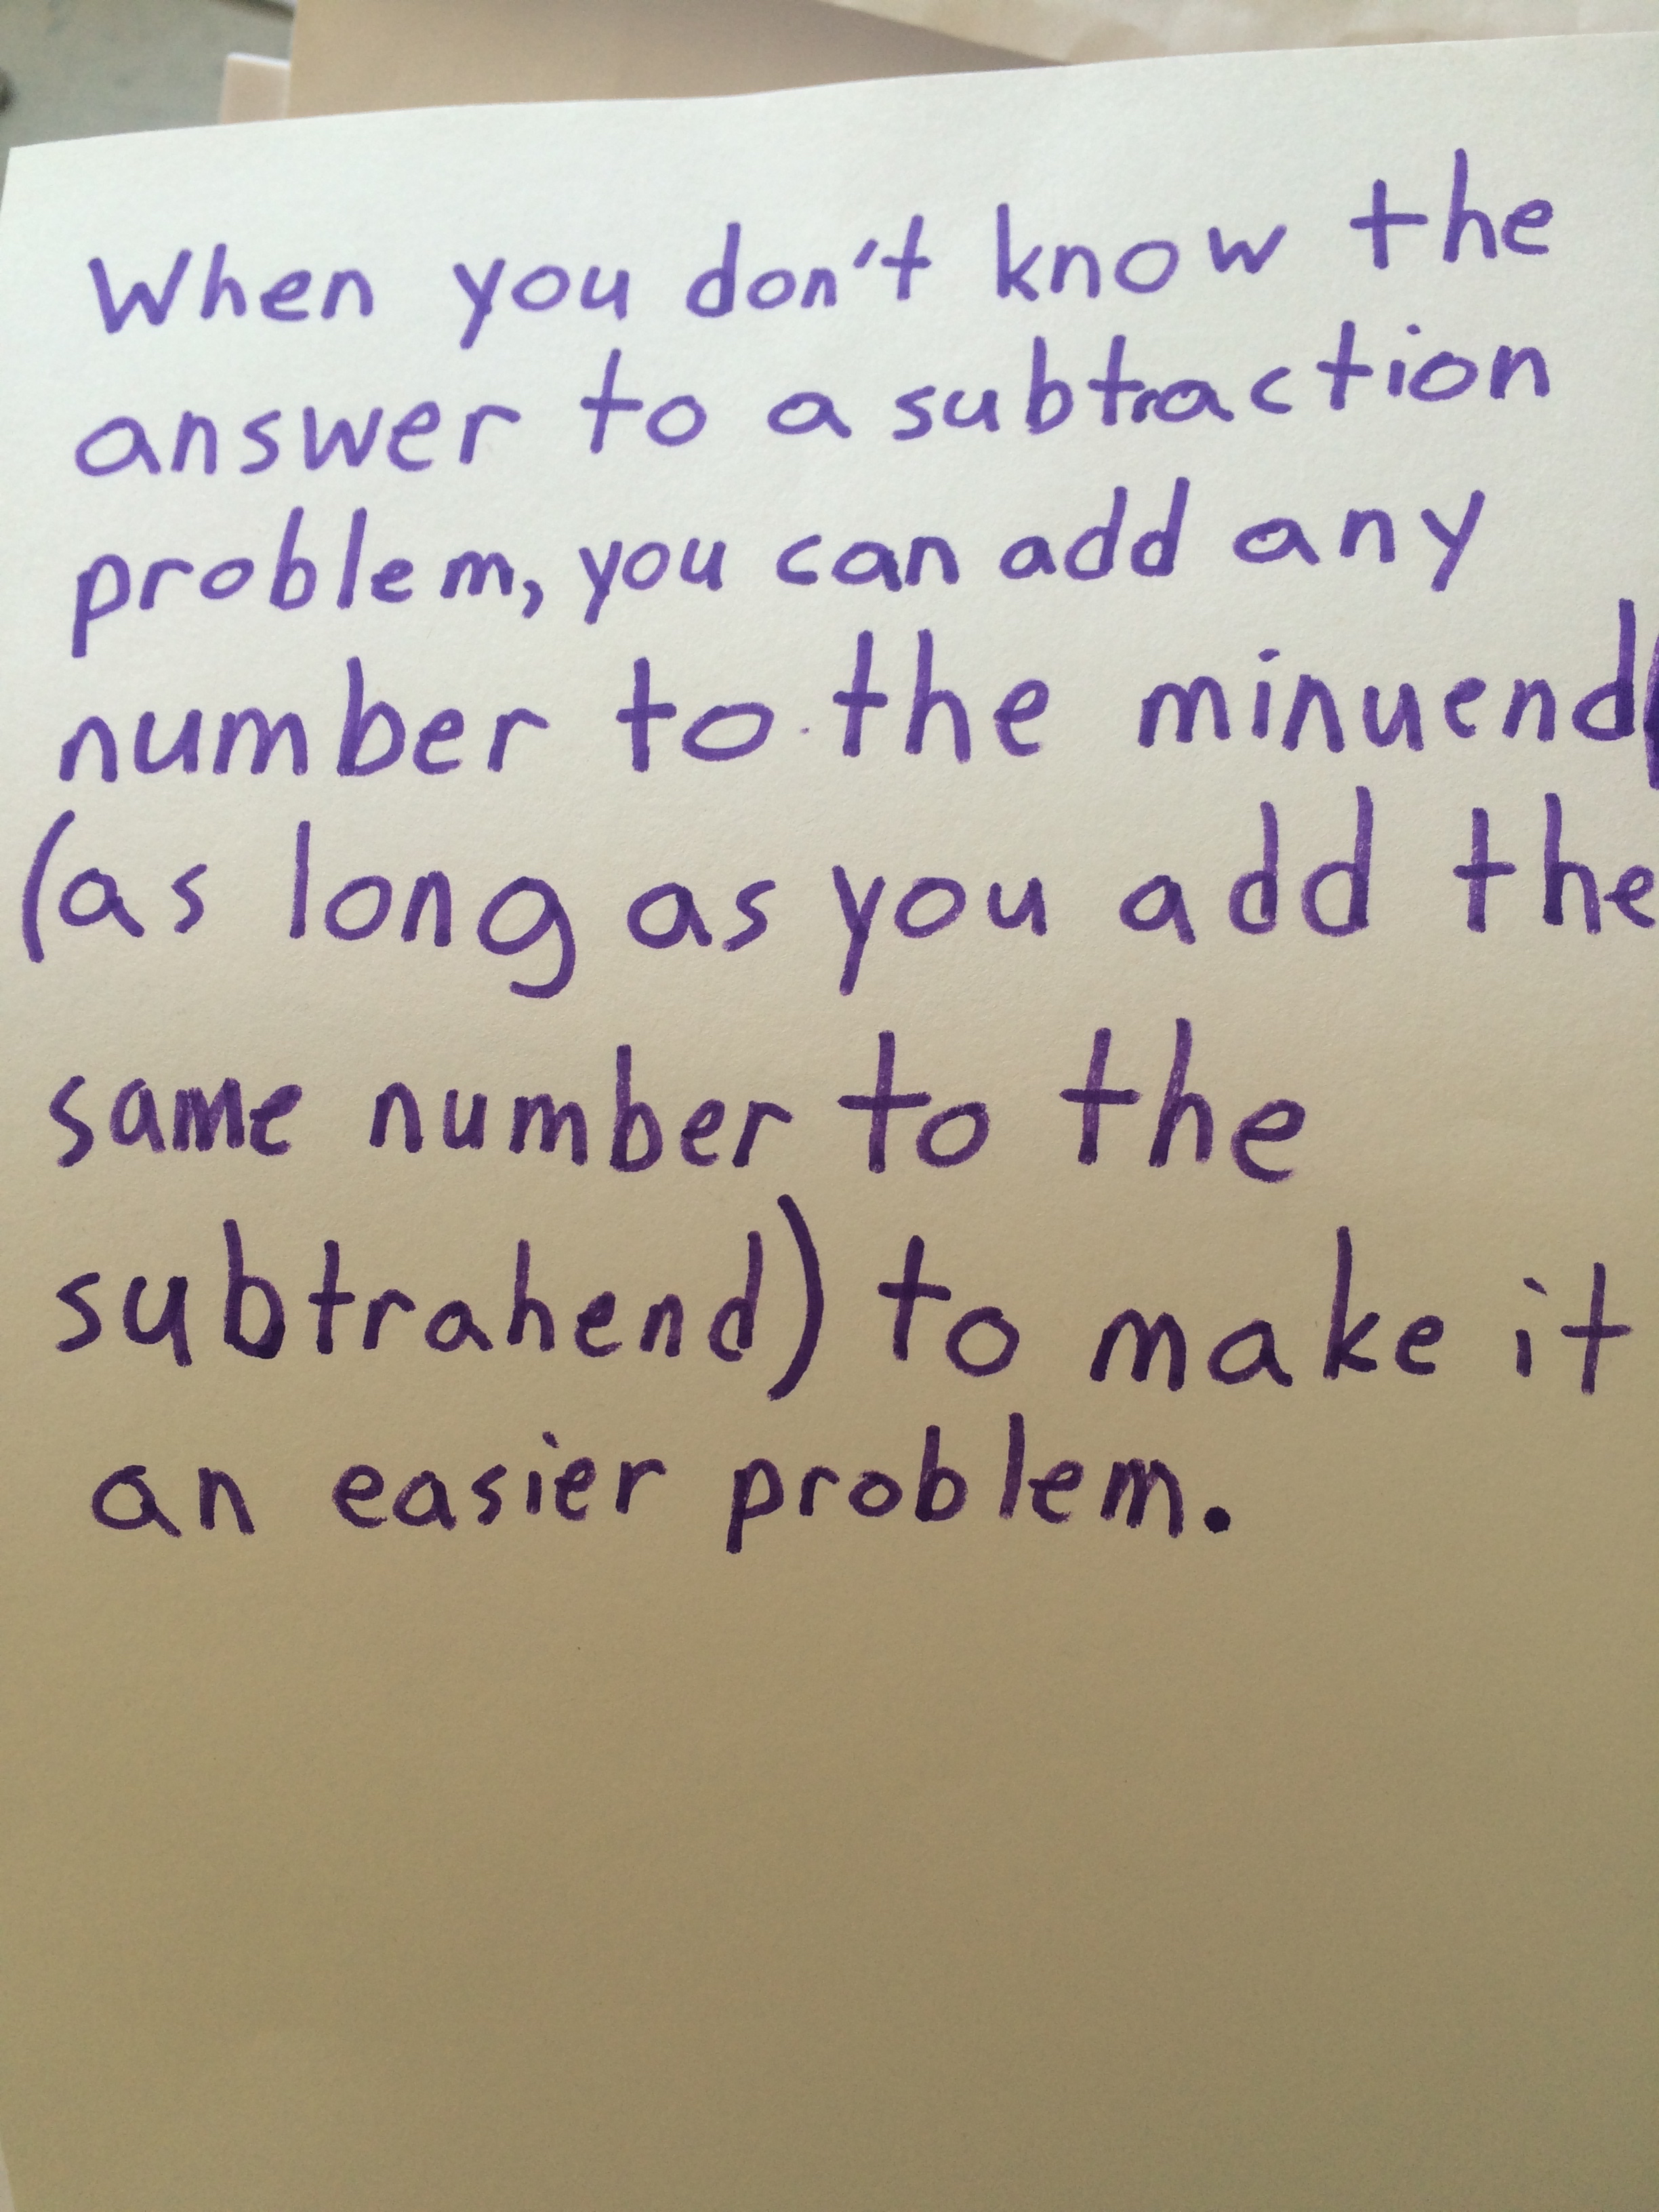 When you don't know the
answer to a subtraction
problem, you can add any
number to the minuend
(as long as you add the
same number to the
subtrahend) to make it
an easier problem.